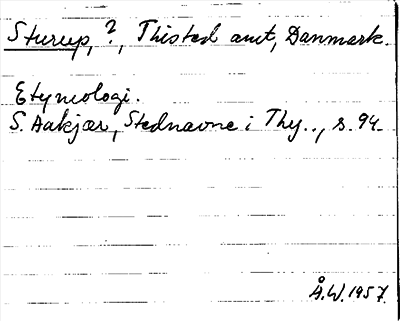 Sturup, ?, Thisted amt, Danmark.
Etymologi.
S. Aakjær, Stednavne i Thy.., s. 94.
Å.W. 1957.